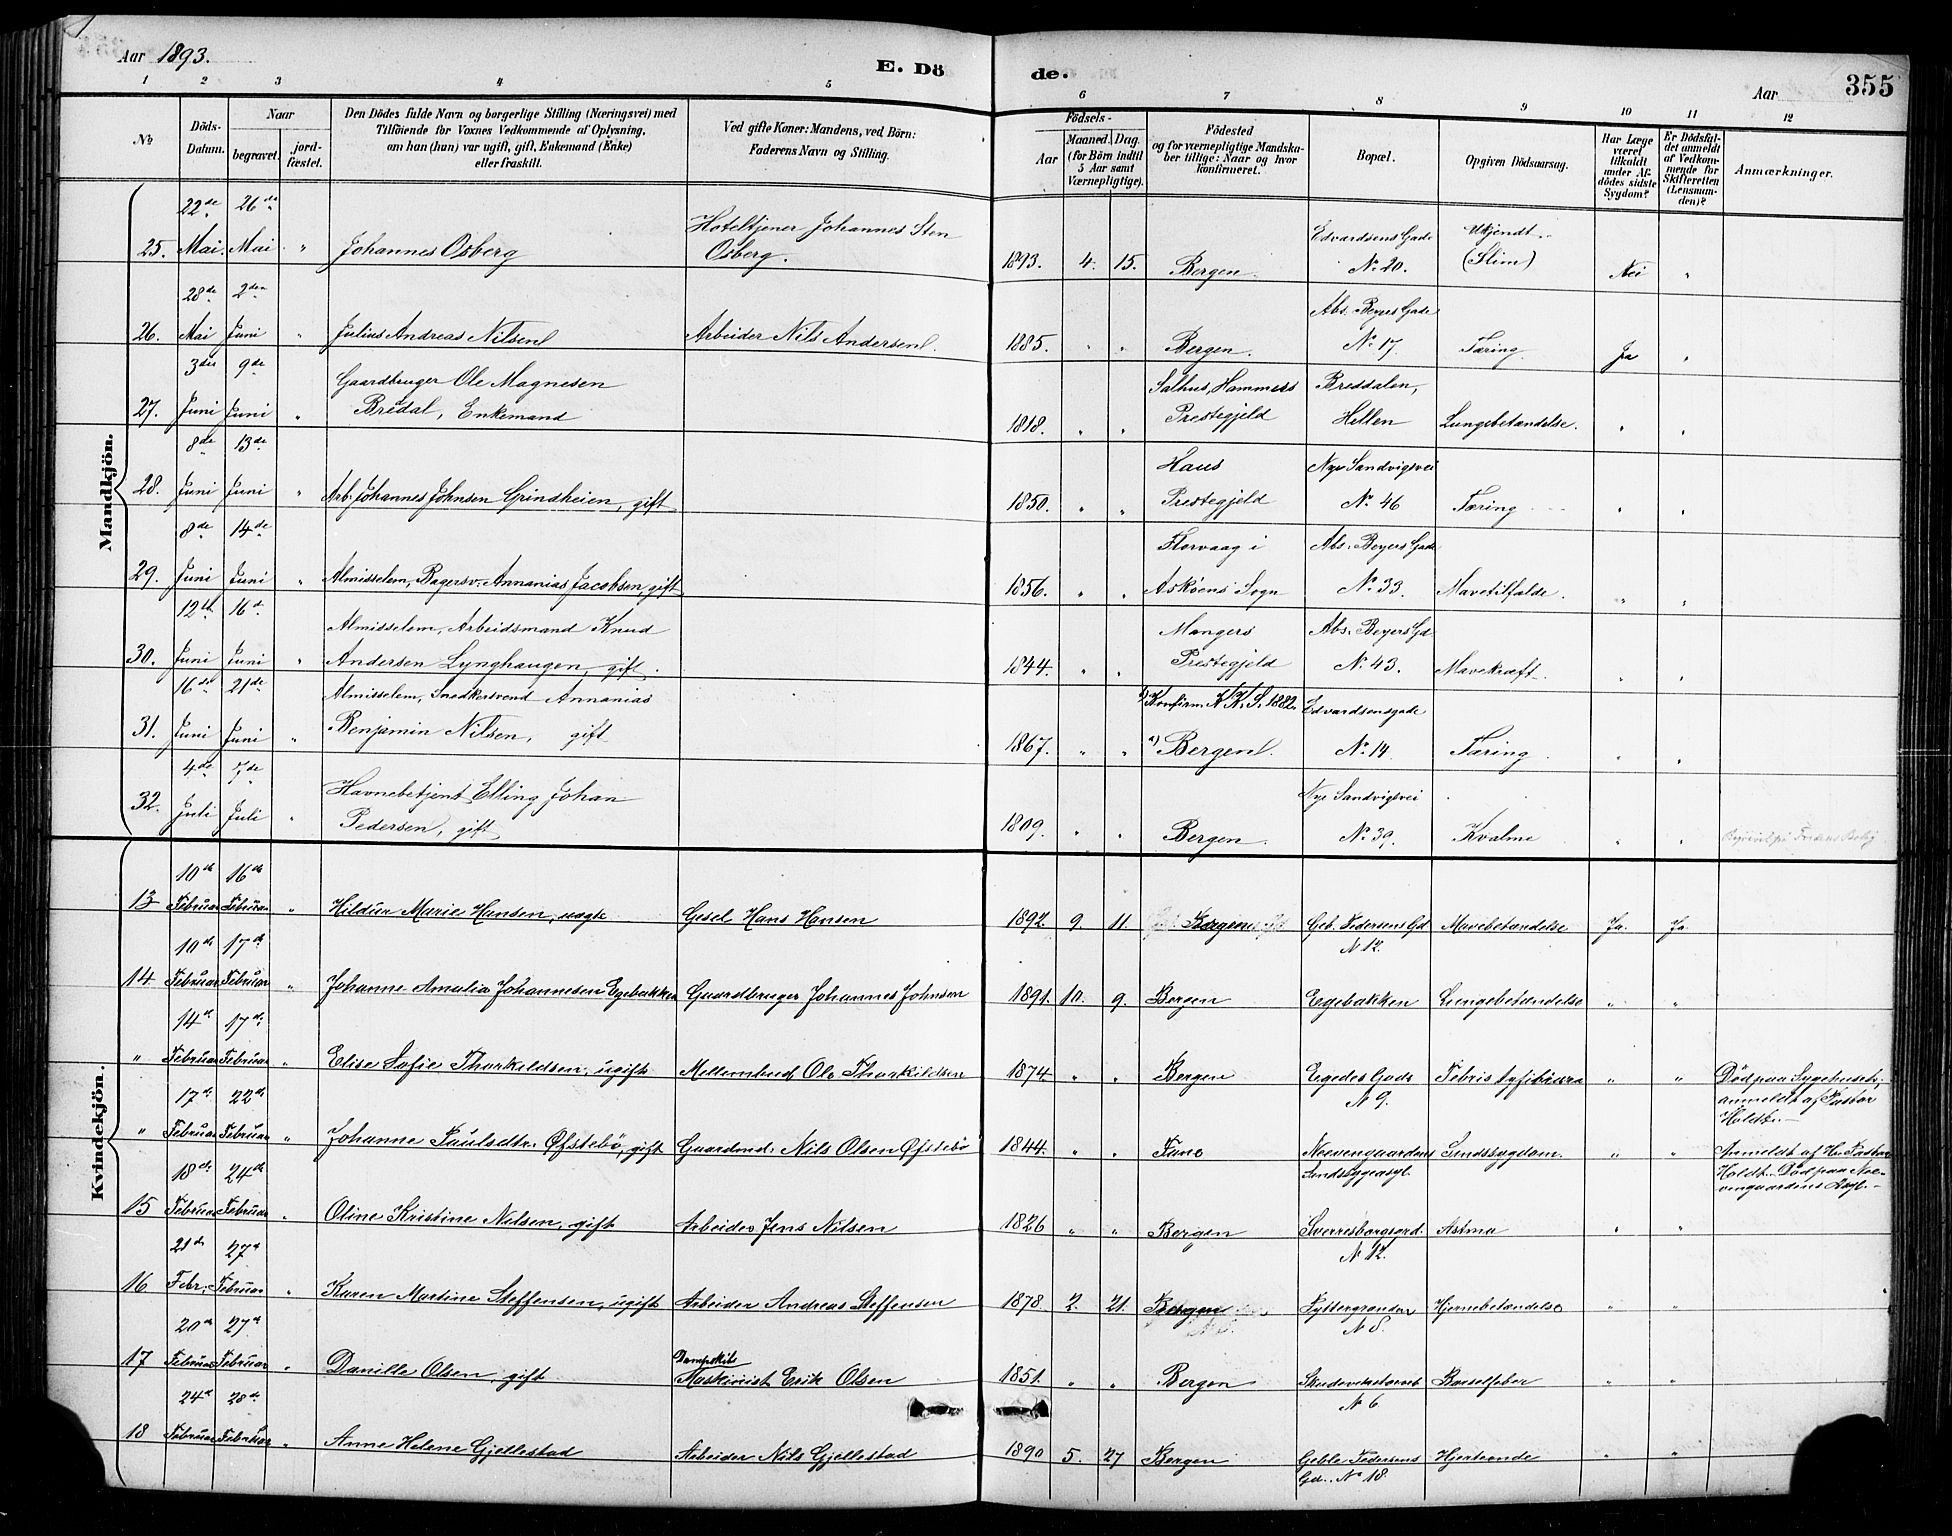 Aar 1893.
E. Döde.
Aar
355
1 2 3 4 5 6 7 8 9 10 11 12
No
Döds-Datum.
Naar
begravet.
jordfæstet.
Den Dödes fulde Navn og borgerlige Stilling (Næringsvei) med
Tilföiende for Voxnes Vedkommende af Oplysning,
om han (hun) var ugift, gift, Enkemand (Enke)
eller fraskilt.
Ved gifte Koner: Mandens, ved Börn:
Faderens Navn og Stilling.
Födsels-
Aar
Maaned. Dag.
(for Börn indtil
5 Aar samt
Værnepligtige).
Födested
og for værnepligtige Mandskaber tillige: Naar og hvor
konfirmeret.
Bopæl.
Opgiven Dödsaarsag.
Har Læge
været
tilkaldt
under Afdödes sidste
Sygdom?
Er Dödsfaldet anmeldt
af Vedkommende for
Skifteretten
(Lensmanden)?
Anmærkninger.
Mandkjön.
22de 26de
25. Mai. Mai " Johannes Osberg Hoteltjener Johannes Sten Osberg. 1893. 4. 15. Bergen. Edvardsens Gade No 20. Ukjendt (Slim) Nei "
28de 2den
26. Mai Juni " Julius Andreas Nilsen Arbeider Nils Andersen. 1885. " " Bergen. Abs. Beyers Gade No 17. Tæring Ja "
3die 9de
27. Juni Juni " Gaardbruger Ole Magnesen Bredal, Enkemand 1818. " " Salhus, Hammers Prestegjeld Breddalen, Hellen Lungebetændelse. " "
8de 13de
28. Juni Juni " Arb. Johannes Johnsen Grindheien, gift 1850. " " Haus Prestegjeld Nye Sandvigsvei No 46 Tæring " "
8de 14de
29. Juni Juni " Almisselem, Bagersv. Annanias Jacobsen, gift 1856. " " Florvaag i Askøens Sogn Abs. Beyers Gade No 33. Mavetilfælde. " "
12te 16de
30. Juni Juni " Almisselem, Arbeidsmand Knud Andersen Lynghaugen, gift. 1844. " " Mangers Prestegjeld Abs. Beyers Gd. No 43. Mavekræft. " "
16de 21de
31. Juni Juni " Almisselem, Snedkersvend Annanias Benjamin Nilsen, gift 1867. " " Konfirm. N.K.S. 1882. Bergen. Edvardsensgade No 14. Tæring. " "
4de 7de
32. Juli Juli " Havnebetjent Elling Johan Pedersen, gift 1809. " " Bergen. Nye Sandvigsvei No 39. Kvalme " "
Kvindekjön.
10de 16de
13 Februar Februar " Hildur Marie Hansen, uægte Gesel Hans Hansen 1892. 9. 11. Bergen Geb. Pedersens Gd N 12. Mavebetændelse Ja. Ja.
10de 17de
14 Februar Februar " Johanne Amalia Johannesen Egebakken Gaardbruger Johannes Johnsen 1891. 10. 9. Bergen Egebakken Lungebetændelse " "
14de 17de
" Februar Februar " Elise Sofie Thorkildsen, ugift Mellembud Ole Thorkildsen 1874. " " Bergen Egedes Gade N 9. Febris tyfoidea " " Död paa Sygehuset, anmeldt af Pastor Holdt.
17de 22de
" Februar Februar " Johanne Paulsdtr. Øfstebö, gift Gaardmd. Nils Olsen Øfstebö 1844. " " Fane Neevengaardens Sindssygeasyl. Sindssygdom. " " Anmeldt af Hr. Pastor Holdt. Död paa Neevengaardens Asyl.
18de 24de
15 Februar Februar " Oline Kristine Nilsen, gift Arbeider Jens Nilsen 1826 " " Bergen Sverresborgsgd. N 12. Astma " "
21de 27de
16 Febr. Februar " Karen Martine Steffensen, ugift Arbeider Andreas Steffensen 1878 2. 21. Bergen Pyttergranden N 8. Hjernebetændelse " "
20de 27de
17 Februar Februar " Danille Olsen, gift Dampskibs Maskinist Erik Olsen 1851. " " Bergen N 6 Barselfeber " "
24de 28de
18 Februar Februar " Anne Helene Gjellestad Arbeider Nils Gjellestad 1890 5. 27 Bergen Geble Pedersens Gd. No 18 Hjerteonde " "